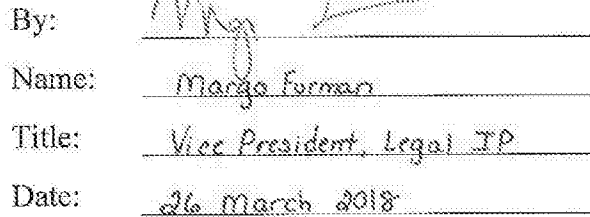 By:
Name: Margo Furman
Title: Vice President, Legal IP
Date: 26 March 2018